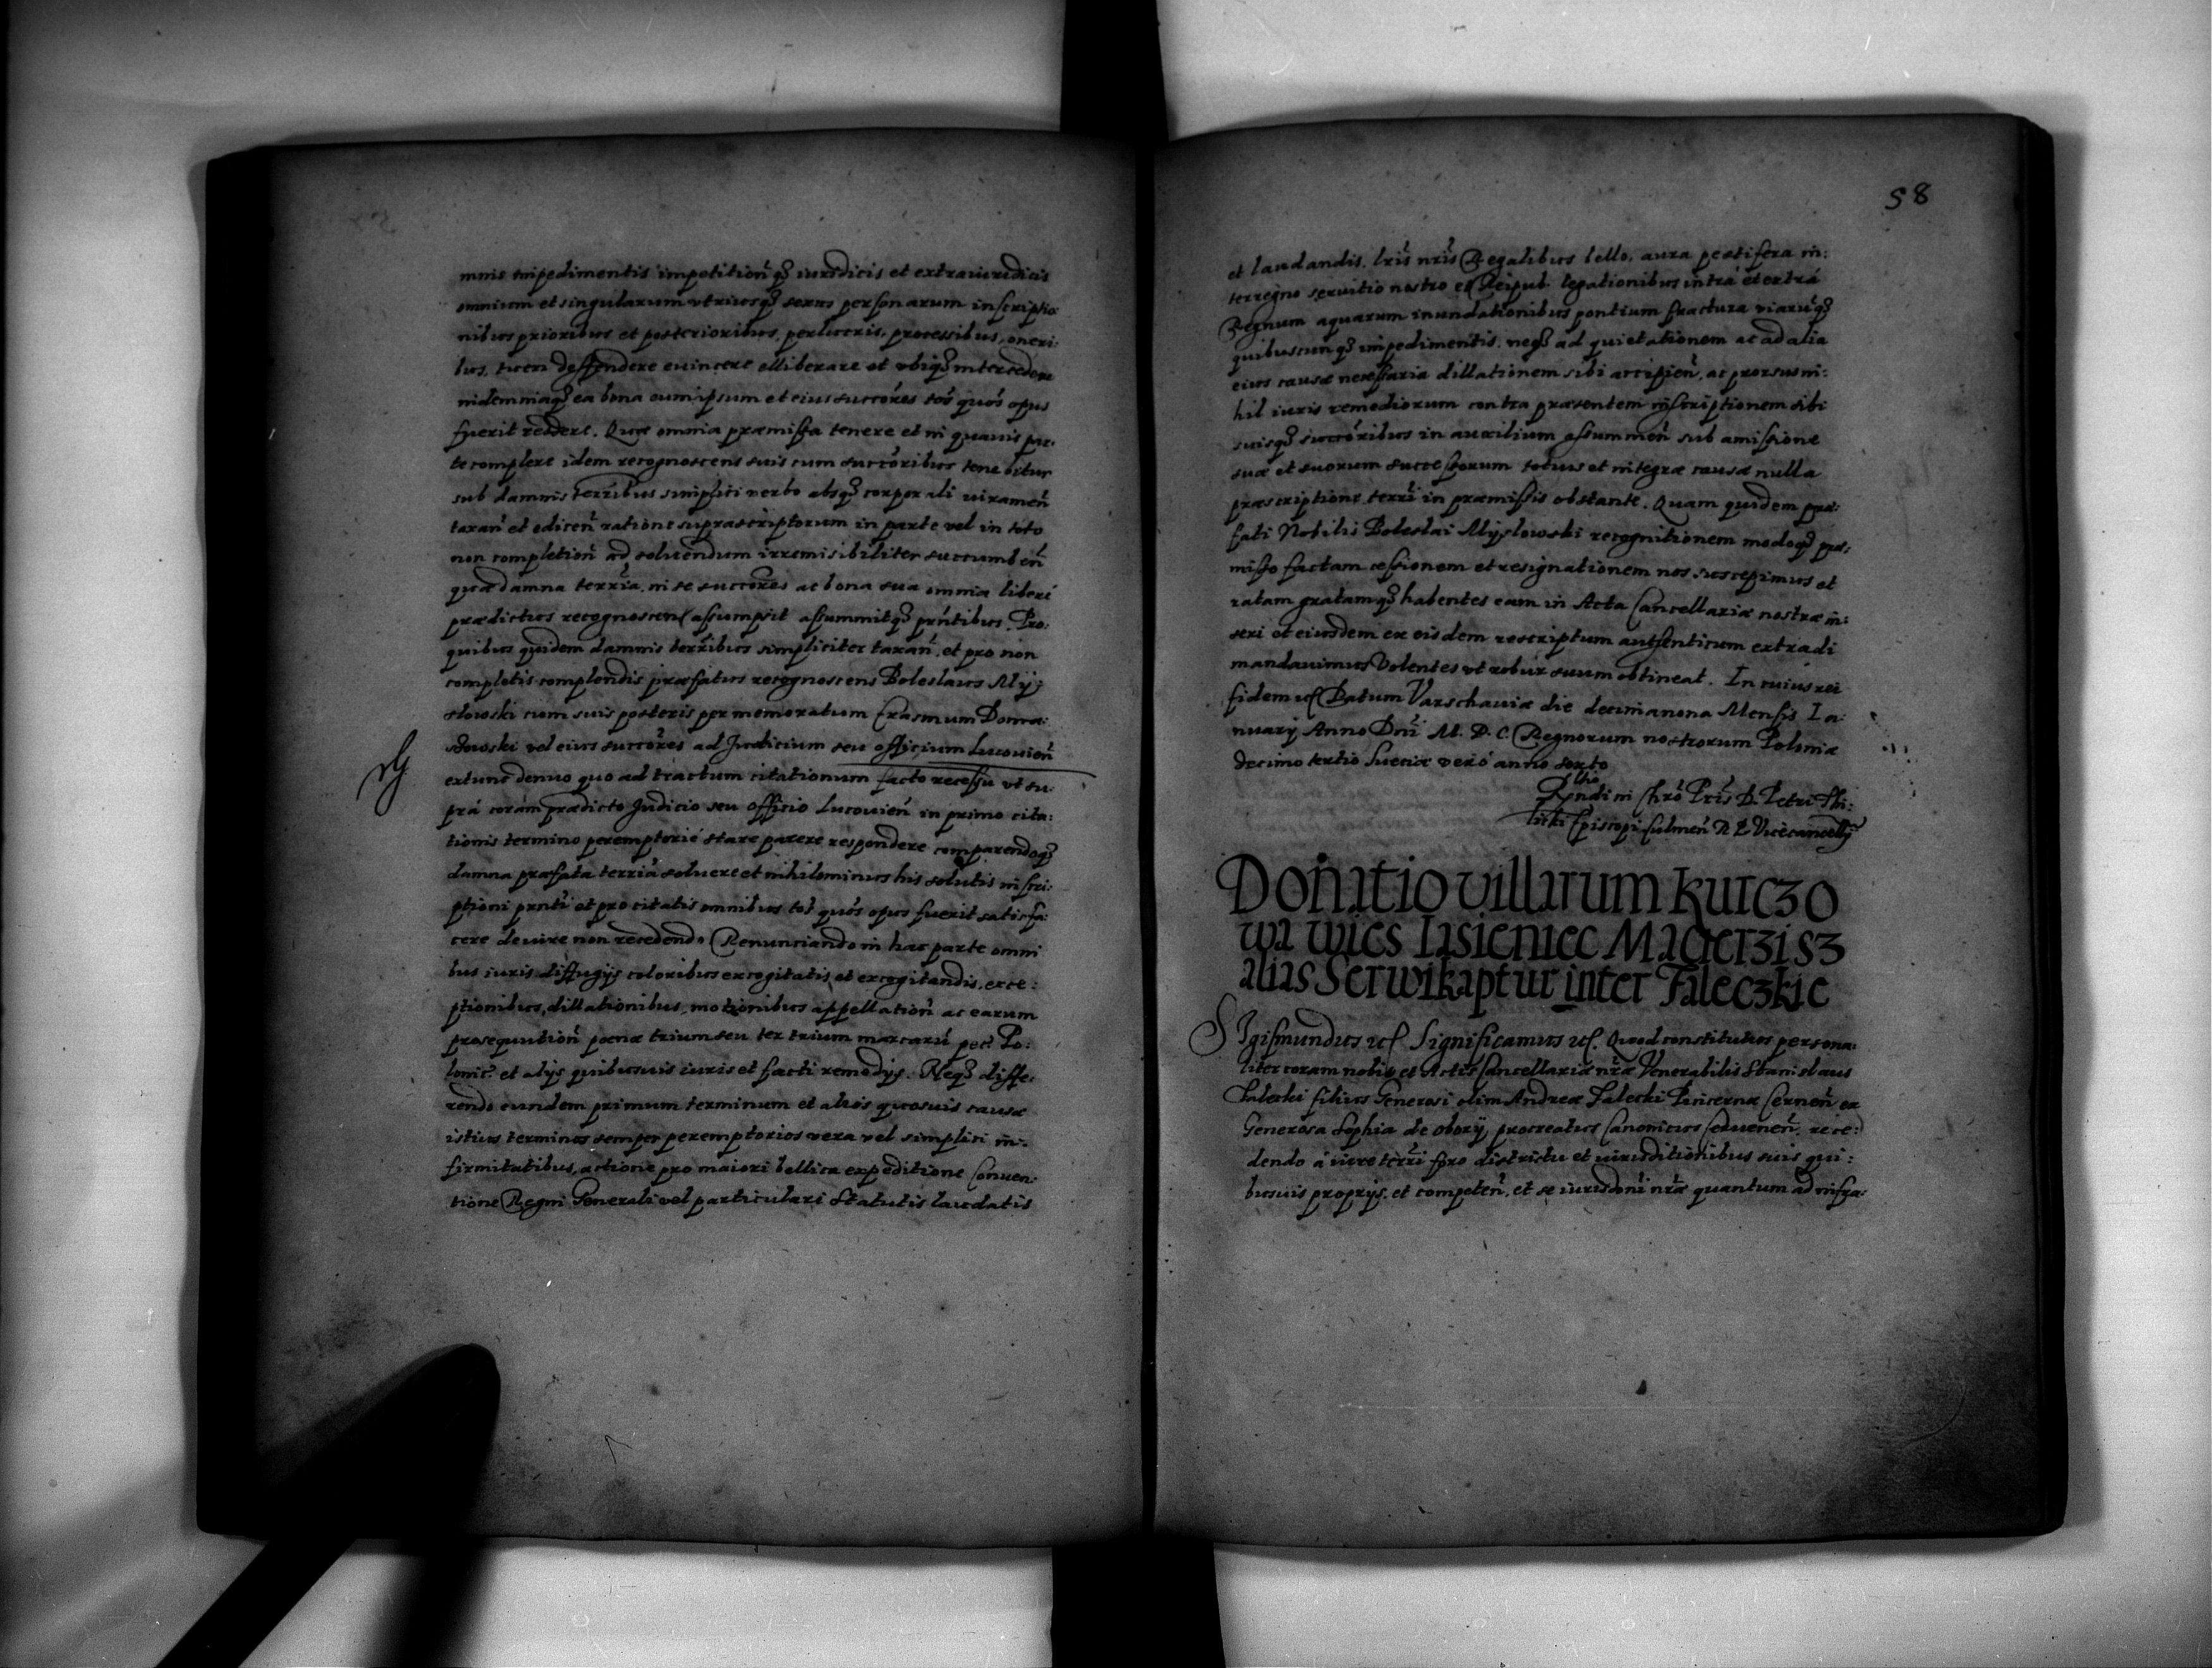 mnis impedimentis impetitioñ qȝ iuridicis et extraiuridicis
omnium et singularum vtriusqȝ sexus personarum inscriptio
nibus prioribus et posterioribus, perlucris, processibus, oneri:
bus, tueri deffendere euincere elliberare et vbiqȝ intercedere
indemniaqȝ ea bona eum ipsum et eius succóres tot́ quot́ opus
fuerit reddere. Quæ omnia præmissa tenere et in quauis par:
te complere idem recognoscens suis cum succóribus tenebitur
sub damnis terŕibus simplici verbo absqȝ corporali iurameñ
taxañ et ediceñ ratione suprascriptorum in parte vel in toto
non completioñ ad soluendum irremisibiliter succumbeñ
quæ damna terŕia, in se succóres ac bona sua omnia liberé
prædictus recognoscen assumpsit assummitqȝ pŕntibus. Pro:
quibus quidem damnis terŕibus simpliciter taxañ, et pro non
completis complendis præfatus recognoscens Boleslaus Mij
słowski cum suis posteris per memoratum Erasmum Doma:
słowski vel eius succóres ad Judicium seu officium Lucouień
extunc denuo quo ad tractum citationum facto recessu vt su:
prá coram prædicto Judicio seu officio Lucouień in primo cita:
tionis termino peremptorié stare parere respondere comparendoqȝ
damna præfata terŕia soluere et nihilominus his solutis inscri:
ptioni pŕnti et pro citatis omnibus tot́ quot́ opus fuerit satisfa:
cere de iure non recedendo Renunciando in hac parte omni
bus iuris diffugijs coloribus excogitatis et excogitandis, exce:
ptionibus, dillationibus, motionibus appellatioñ ac earum
prosequutioñ poenæ trium seu ter trium marcarū pec: Po:
lonic: et alijs quibusuis iuris et facti remedijs. Neqȝ diffe:
rendo eundem primum terminum et alios quosuis causæ
istius terminos semper peremptorios vera vel simplici in:
firmitatibus, actione pro maiori bellica expeditione Conuen:
tione Regni Generali vel particulari Statutis laudatis
58
et laudandis, lŕis nŕis Regalibus bello, aura pestifera in:
terregno seruitio nostro et Reipub. legationibus intrá et extrá
Regnum aquarum inundationibus pontium fractura viarūqȝ
quibuscunqȝ impedimentis, neqȝ ad quietationem ac ad alia
eius causæ necessaria dillationem sibi accipieñ, ac prorsus ni:
hil iuris remediorum contra præsentem inscriptionem sibi
suisqȝ succóribus in auxilium assummeñ sub amissione
suæ et suorum successorum totius et integræ causæ nulla
præscriptione terŕi in præmissis obstante. Quam quidem præ:
fati Nobilis Boleslai Mijslowski recognitionem modoqȝ præ:
misso factam cessionem et resignationem nos suscepimus et
ratam gratamqȝ habentes eam in Acta Cancellariæ nostræ in:
seri et eiusdem ex eisdem rescriptum autenticum extradi
mandauimus Volentes vt robur suum obtineat. In cuius rei
fidem etc Datum Varschauiæ die decimanona Mensis Ia:
nuarij Anno Dńi M. D. C. Regnorum nostrorum Poloniæ
decimo tertio Sueciæ veró anno sexto
Rltio
Rndi in Chrō Pŕis D. Petri Tbi:
licki Episcopi Culmeñ R. P. Vicecancellȳ
Donatio villarum Kurczo
wa wies Iasieniec Macierzisz
alias Serwikaptur inter Faleczkie
SIgismundus etc Significamus etc. Quod constitutus persona:
liter coram nobis et Actis Cancellariæ nŕæ Venerabilis Stanislaus
Falecki filius Generosi olim Andreæ Falecki Pincernæ Cerneñ ex
Generosa Sophia de oborÿ procreatus Canonicus Cedueneñ, rece:
dendo á iure terŕi foro districtu et iurisditionibus suis qui:
busuis proprijs, et competeñ, et se iurisdońi nŕæ quantum ad infra: